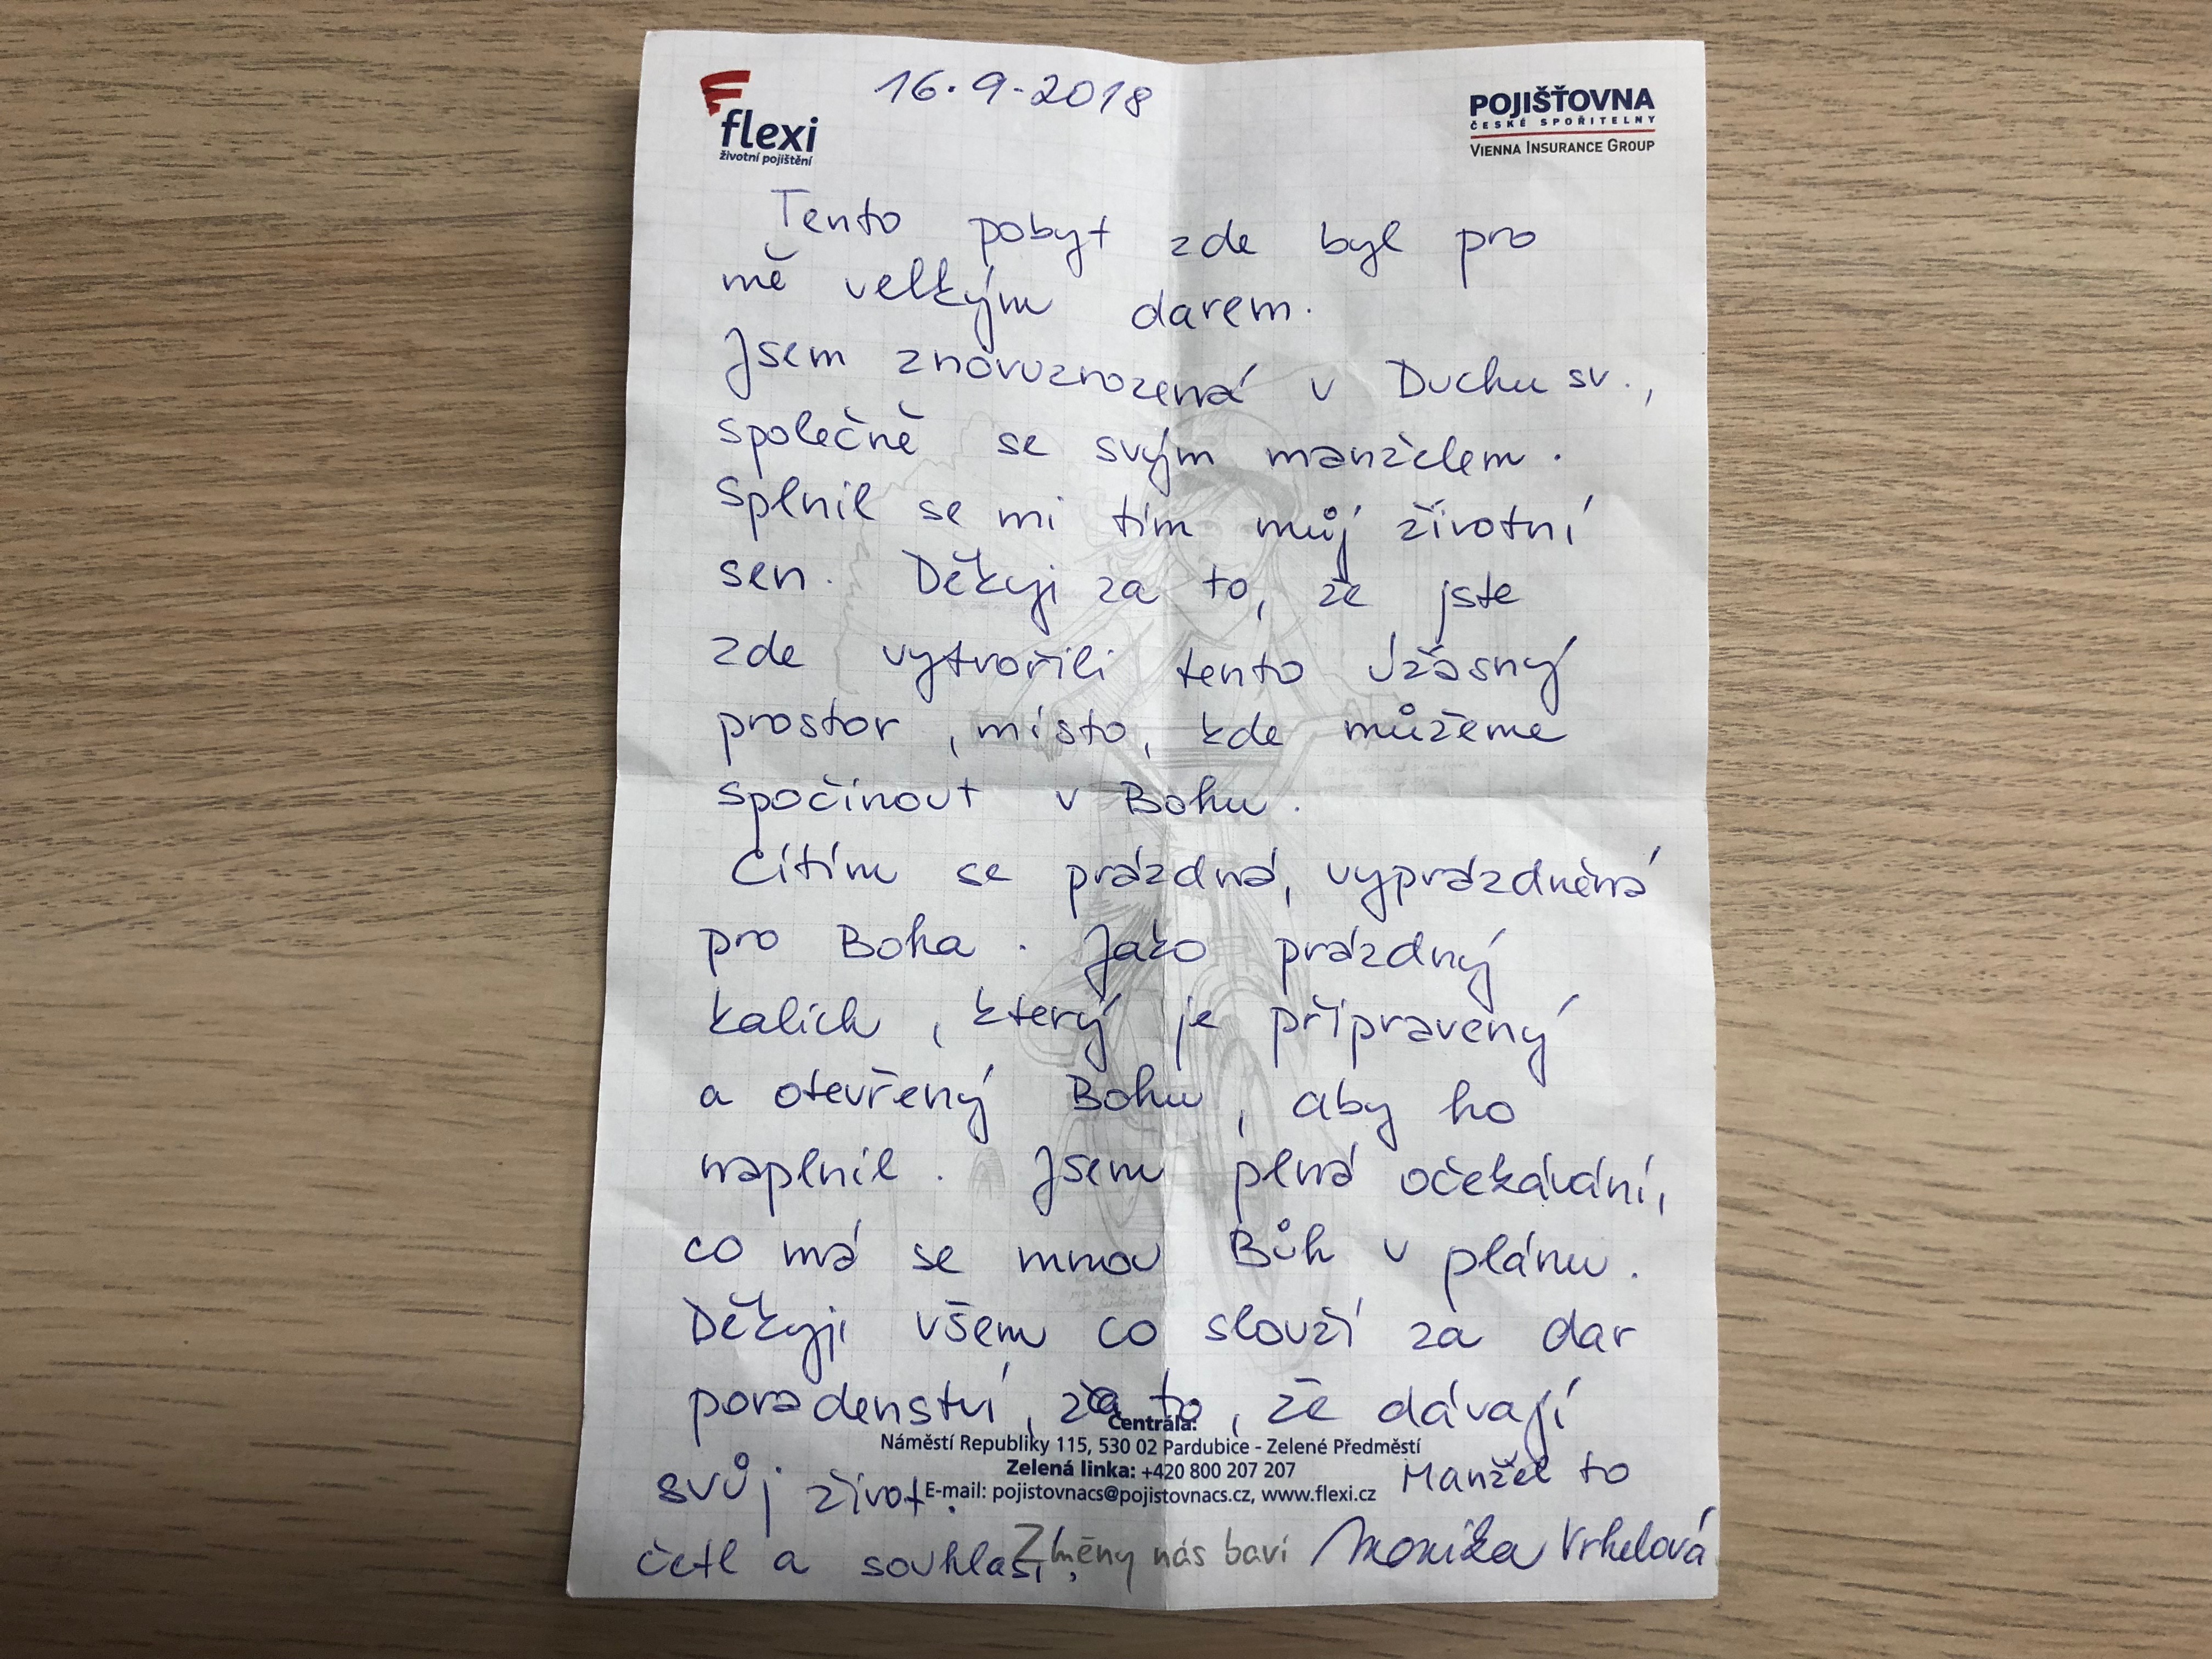 16.9.2018
flexi
životní pojištění
POJIŠŤOVNA
ČESKÉ SPOŘITELNY
VIENNA INSURANCE GROUP
Tento pobyt zde byl pro
mě velkým darem.
Jsem znovuzrozená v Duchu sv.,
společně se svým manželem.
Splnil se mi tím můj životní
sen. Děkuji za to, že jste
zde vytvořili tento úžasný
prostor, místo, kde můžeme
spočinout v Bohu.
Cítím se prázdná, vyprázdněná
pro Boha. Jako prázdný
kalich, který je připravený
a otevřený Bohu, aby ho
naplnil. Jsem plná očekávání,
co má se mnou Bůh v plánu.
Děkuji všem co slouží za dar
poradenství, za to, že dávají
Centrála:
Náměstí Republiky 115, 530 02 Pardubice - Zelené Předměstí
Zelená linka: +420 800 207 207
E-mail: pojistovnacs@pojistovnacs.cz, www.flexi.cz
svůj život. Manžel to
četl a souhlasí.
Změny nás baví
Monika Vrhelová